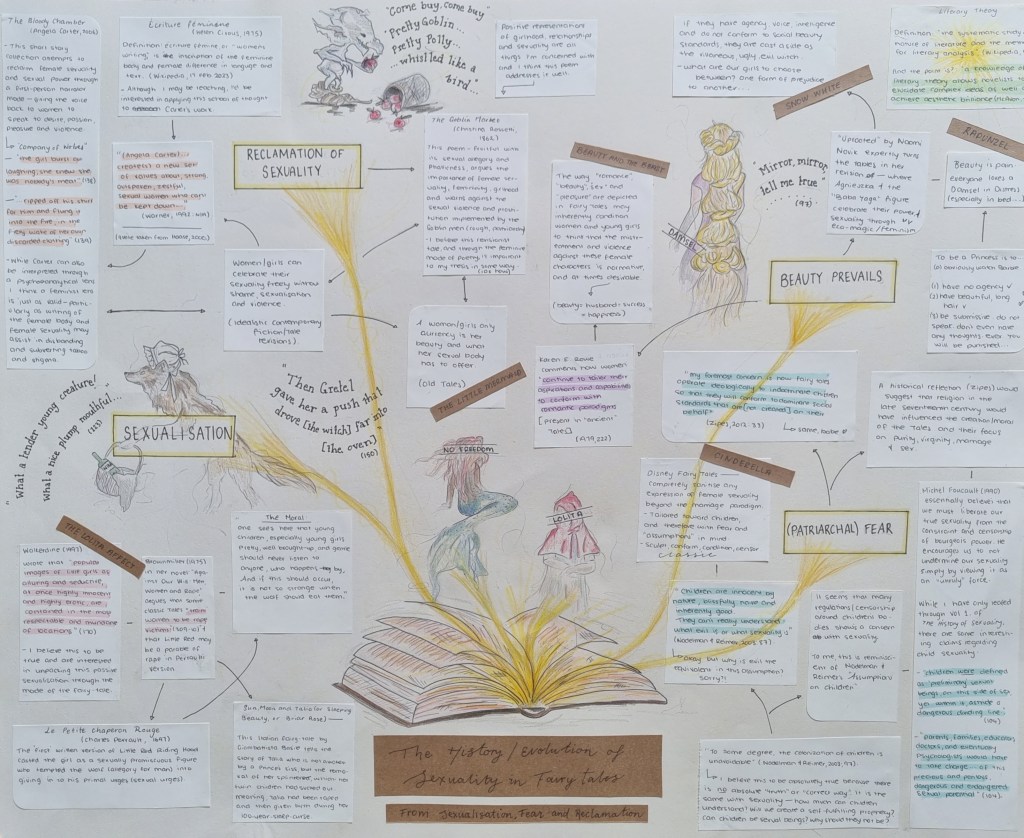 The Bloody Chamber
(Angela Carter, 1979)
- This short story
collection attempts to
reclaim female sexuality
and sexual power through
a first-person narrator
mode - giving the voice
back to women to
speak to desire, passion,
pleasure and violence.
↳ Company of Wolves
- "The girl burst out
laughing; she knew she
was nobody's meat"
- "ripped off his shirt
for him and flung it
into the fire, in the
fiery wake of her own
discarded clothing"
- While Carter can also
be interpreted through
a psychoanalytical lens
I think a feminist lens
is just as valid - partic-
ularly as writing of
the female body and
female sexuality may
assist in disbanding
and subverting taboo
and stigma.
Écriture féminine
(Helen Cixous, 1975)
Definition: Écriture féminine, or "women's
writing", is the inscription of the feminine
body and female difference in language and text.
(Wikipedia, 17 Feb 2023)
- Although I may be reaching, I'd be
interested in applying this school of thought
to Carter's work.
"Come buy, come buy"
"Pretty Goblin...
Pretty Polly...
...whistled like a
bird...
Positive representations
of girlhood, relationships
and sexuality are all
things I'm concerned with
and I think this poem
addresses it well.
If they have agency, voice, intelligence
and do not conform to social beauty
standards, they are cast aside as
the villainous, ugly, evil witch
- what are our girls to choose
between? One form of prejudice
to another...
Literary Theory
Definition: "the systematic study of the
nature of literature and the methods
for literary analysis" (Wikipedia,
And the point is: "a knowledge of
literary theory allows novelists to
elucidate complex ideas as well as
achieve aesthetic brilliance
"(Angela Carter)...
create(s) a new set
of values about strong,
outspoken, zestful,
sexual women who can't
be kept down..."
RECLAMATION OF
SEXUALITY
The Goblin Market
(Christina Rossetti,
1862)
This poem - fruitful with
its sexual allegory and
politics, argues the
importance of female sex-
uality, femininity, girlhood
and warns against the
sexual violence and
implemented by the
Goblin men
- I believe this revisionist
tale, and through the feminine
mode of poetry, is important
to my thesis in some way
BEAUTY AND THE BEAST
The way "romance",
"beauty", "sex" and
"pleasure" are depicted
in fairy tales may
inherently condition
women and young girls
to think that the mistr-
eatment and violence
against these female
characters is normative,
and at times desirable.
(beauty + husband + success
= happiness)
DAMSEL
"Mirror, mirror,
tell me true
SNOW WHITE
"Uprooted" by Naomi
Novik turns
the tables in her
- where
Agnieszka & the
"Baba Yaga" figure
celebrate their power &
sexuality through
eco-magic/feminism
RAPUNZEL
Beauty is pain...
everyone loves a
Damsel in Distress
(especially in bed...)
BEAUTY PREVAILS
To be a Princess is to:
(1) have no agency ✓
(2) have beautiful, long
hair ✓
(3) Be submissive - do not
speak, don't even have
any thoughts ever. You
will be punished...
Women/girls can
celebrate their
sexuality freely without
shame, sexualisation
and violence
(Idealistic contemporary
fiction/tale
revisions)
A women/girls only
currency is her
beauty and what
her sexual body
has to offer
(old Tales)
THE LITTLE MERMAID
Karen E. Rowe
comments how women
"continue to tailor their
aspirations and capabilities
to conform with
romantic paradigms
[present in 'ancient'
tales]
"my foremost concern is how fairy tales
operate ideologically to indoctrinate children
so that they will conform to dominant social
standards that are [not created] on their
behalf"
↳ same, babe
A historical reflection (Zipes) would
suggest that religion in the
late seventeenth century would
have influenced the creation/moral
of the tales and their focus
on purity, virginity, marriage
& sex.
"What a tender young creature!
what a nice plump mouthful...
SEXUALISATION
"Then Gretel
gave her a push that
drove [the witch] far into
[the oven.
(150)
CINDERELLA
Disney Fairy Tales -
completely sanitise any
expression of female sexuality
beyond the marriage paradigm.
- Tailored toward children,
and therefore with fear and
"assumptions" in mind
- Sculpt, conform, condition, censor
classic
NO FREEDOM
LOLITA
(PATRIARCHAL) FEAR
THE LOLITA EFFECT
Walkerdine (1997)
wrote that "popular
images of little girls as
alluring and seductive,
at once highly innocent
and highly erotic, are
contained in the most
respectable and mundane
of locations"
- I believe this to be
true and are interested
in unpacking this passive
sexualisation through the
mode of the fairy tale.
Brownmiller (1975)
in her novel "Against
Our Will: Men,
Women and Rape"
argues that some
classic tales "train
women to be rape
victims" & that
Little Red may
be a parable of
rape in Perrault's
version
The Moral
One sees here that young
children, especially young girls
Pretty, well brought-up and gentle
Should never listen to
anyone who happens by,
And if this should occur,
it is not so strange when
the wolf should eat them."
"Children are innocent by
nature, blissfully naive and
inherently good.
They can't really understand
what evil is or what sexuality is"
(Nodelman & Reimer, 2003, 87)
↳ Okay but why is evil the
equivalent in this assumption?
sorry?!
It seems that many
regulations/censorship
around children's bo-
dies shows a concern
with sexuality.
To me, this is reminisc-
ent of Nodelman &
Reimer's 'Assumptions
on children'.
Michel Foucault
essentially believes that
we must liberate our
true sexuality from the
constraint and censorship
of bourgeois power. He
encourages us to not
undermine our sexuality
simply by viewing it as
an "unruly" force.
While I have only read
through Vol 1. of
the History of Sexuality,
there are some interest-
ing claims regarding
child sexuality
- "children were defined
as 'preliminary' sexual
beings, on this side of sex,
yet within it, astride a
dangerous dividing line"
(104)
- "parents, families, educators,
doctors, and eventually
psychologists would have
to take charge... of this
precious and perilous,
dangerous and endangered
sexual potential" (104).
Le Petite Chaperon Rouge
(Charles Perrault, 1697)
The first written version of Little Red Riding Hood
casted the girl as a sexually promiscuous figure
who tempted the wolf (allegory for man) into
giving in to his primal urges (sexual urges).
Sun, Moon and Talia (or Sleeping
Beauty, or Briar Rose) -
This Italian fairy tale by
Giambattista Basile tells the
story of Talia who is not awoken
by a Prince's kiss, but the remo-
val of her splinter, which her
twin children had sucked out
meaning, Talia had been raped
and then given birth during her
100-year-sleep curse.
The History/Evolution of
Sexuality in Fairy Tales
- From Sexualisation, Fear and Reclamation
"To some degree, the colonisation of children is
unavoidable" (Nodelman & Reimer, 2003, 97)
↳ I believe this to be absolutely true because there
is no absolute "truth" or "correct way". It is
the same with sexuality - how much can children
understand? Will we create a self-fulfilling prophecy?
Can children be sexual beings? Why should they not be?